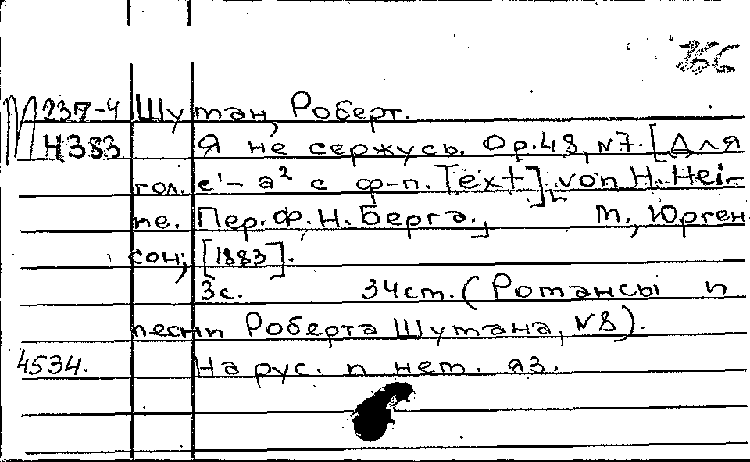 М 237-4 Шуман, Роберт.
4383 Я не сержусь. Op.48, №7. [Для
гол. e¹-a² с ф-п. Text] von H. Hei-
ne. Пер. Ф.Н. Берга. М., Юрген-
сон, [1883].
3с. 34см. (Романсы и
песни Роберта Шумана, №8).
4534. На рус. и нем. яз.